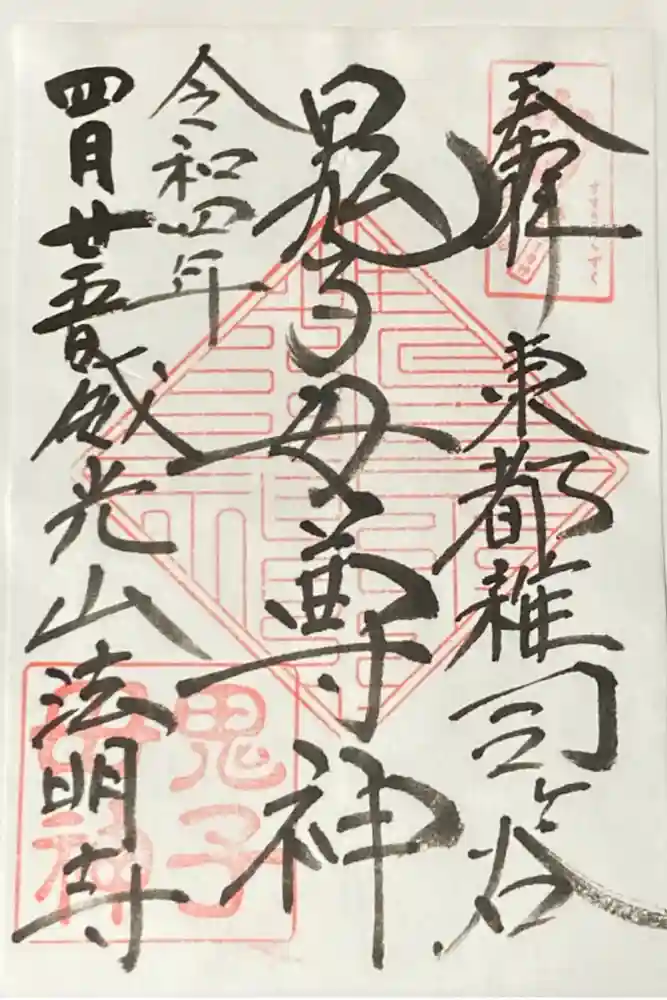 奉拝
東都雑司ケ谷
鬼子母尊神
令和四年
四月廿五日威光山法明寺
鬼子
母神